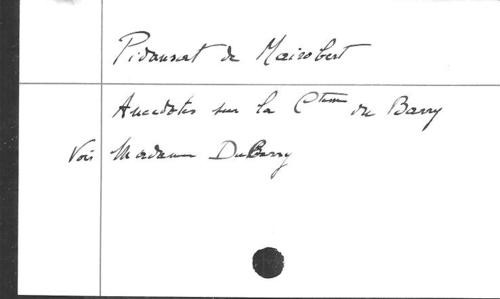 Pidansat de Mairobert
Anecdotes sur la Ctesse du Barry
Voir Madame DuBarry